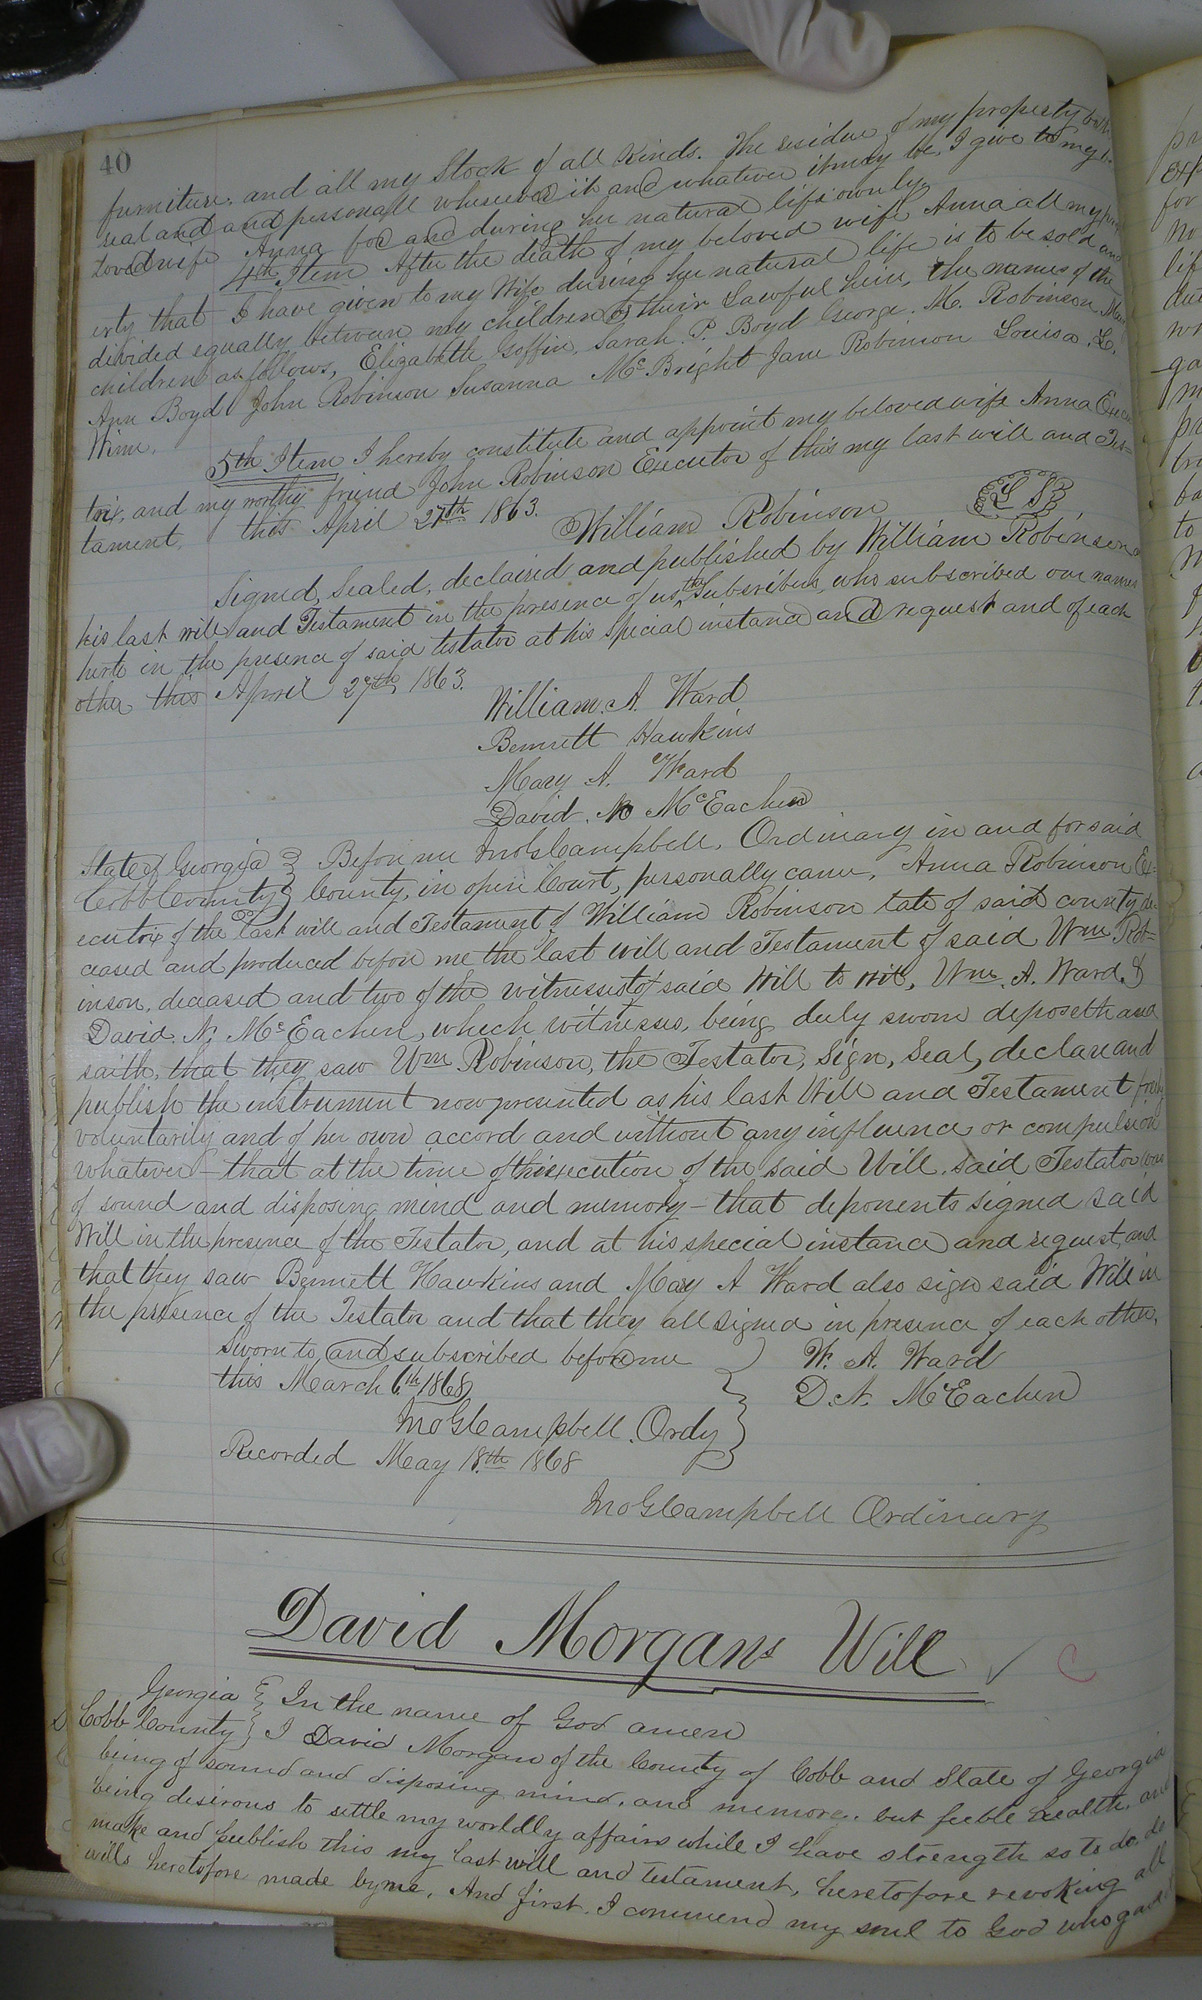 40
furniture, and all my Stock of all Kinds. The residue of my property both
real and and personall wheresoever it is and whatever it may be, I give to my be
loved wife Anna for and during her natural life ownly
4th Item After the death of my beloved wife Anna all my prop
erty that I have given to my Wife during her natural life is to be sold and
divided equally between my children or their Lawful heirs, the names of the
children as follows, Elizabeth Goffin, Sarah. P. Boyd George. M. Robinson Mary
Ann Boyd John Robinson Susanna McBright Jane Robinson Louisa L.
Winn.
5th Item I hereby constitute and appoint my beloved wife Anna Execu
trix, and my worthy friend John Robinson Executor of this my last will and Tes=
tament, this April 27th 1863.
William Robinson L S
Signed, Sealed, declaired and published by William Robinson as
his last will and Testament in the presence of us the Subscribers, who subscribed our names
hereto in the presence of said testator at his special instance and request and of each
other this April 27th 1863.
William. A. Ward
Bennett Hawkins
Mary A. Ward
David. N McEachen
State of Georgia } Before me Jno G Campbell, Ordinary in and for said
Cobb County } County, in open Court, personally came, Anna Robinson Ex=
ecutrix of the last will and Testament of William Robinson late of said county de
ceased and produced before me the last will and Testament of said Wm Rob=
inson, deceased and two of the witnesses to said Will to wit, Wm. A. Ward &
David. N. McEachen, which witnesses, being duly sworn deposeth and
saith, that they saw Wm Robinson, the Testator, Sign, Seal, declare and
publish the instrument now presented as his last Will and Testament freely
voluntarily and of her own accord and without any influence or compulsion
whatever - that at the time of the execution of the said Will. said Testator was
of sound and disposing mind and memory - that deponents signed said
Will in the presence of the Testator, and at his special instance and request, and
that they saw Bennett Hawkins and Mary A Ward also sign said Will in
the presence of the Testator and that they all signed in presence of each other,
Sworn to and subscribed before me } W. A. Ward
this March 6th 1868 } D. N. McEachen
Jno G Campbell. Ordy }
Recorded May 18th 1868
Jno G Campbell Ordinary
David Morgans Will C
Georgia } In the name of God amen
Cobb County } I David Morgan of the County of Cobb and State of Georgia
being of sound and disposing mind, and memory. but feeble health, and
being desirous to settle my worldly affairs while I have strength so to do. do
make and publish this my last will and testament, heretofore revoking all
wills heretofore made by me, And first. I commend my soul to God who gave it